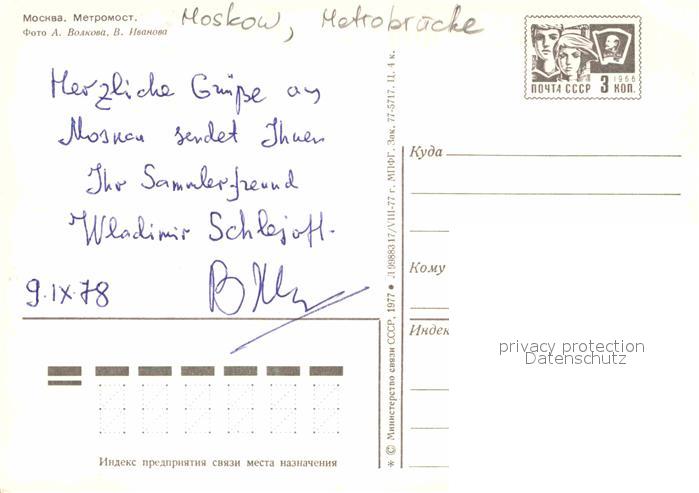 Москва. Метромост.
Фото А. Волкова, В. Иванова
Moskow, Metrobrücke
Herzliche Grüße aus
Moskau sendet Ihnen
Ihr Sammlerfreund
Wladimir
9.IX.78
Индекс предприятия связи места назначения
* © Министерство связи СССР, 1977 ● 317/VIII-77 г. МПФГ. Зак. 77-5717. Ц. 4 к.
1966
ПОЧТА СССР 3 КОП.
Куда
Кому
Индек
privacy protection
Datenschutz